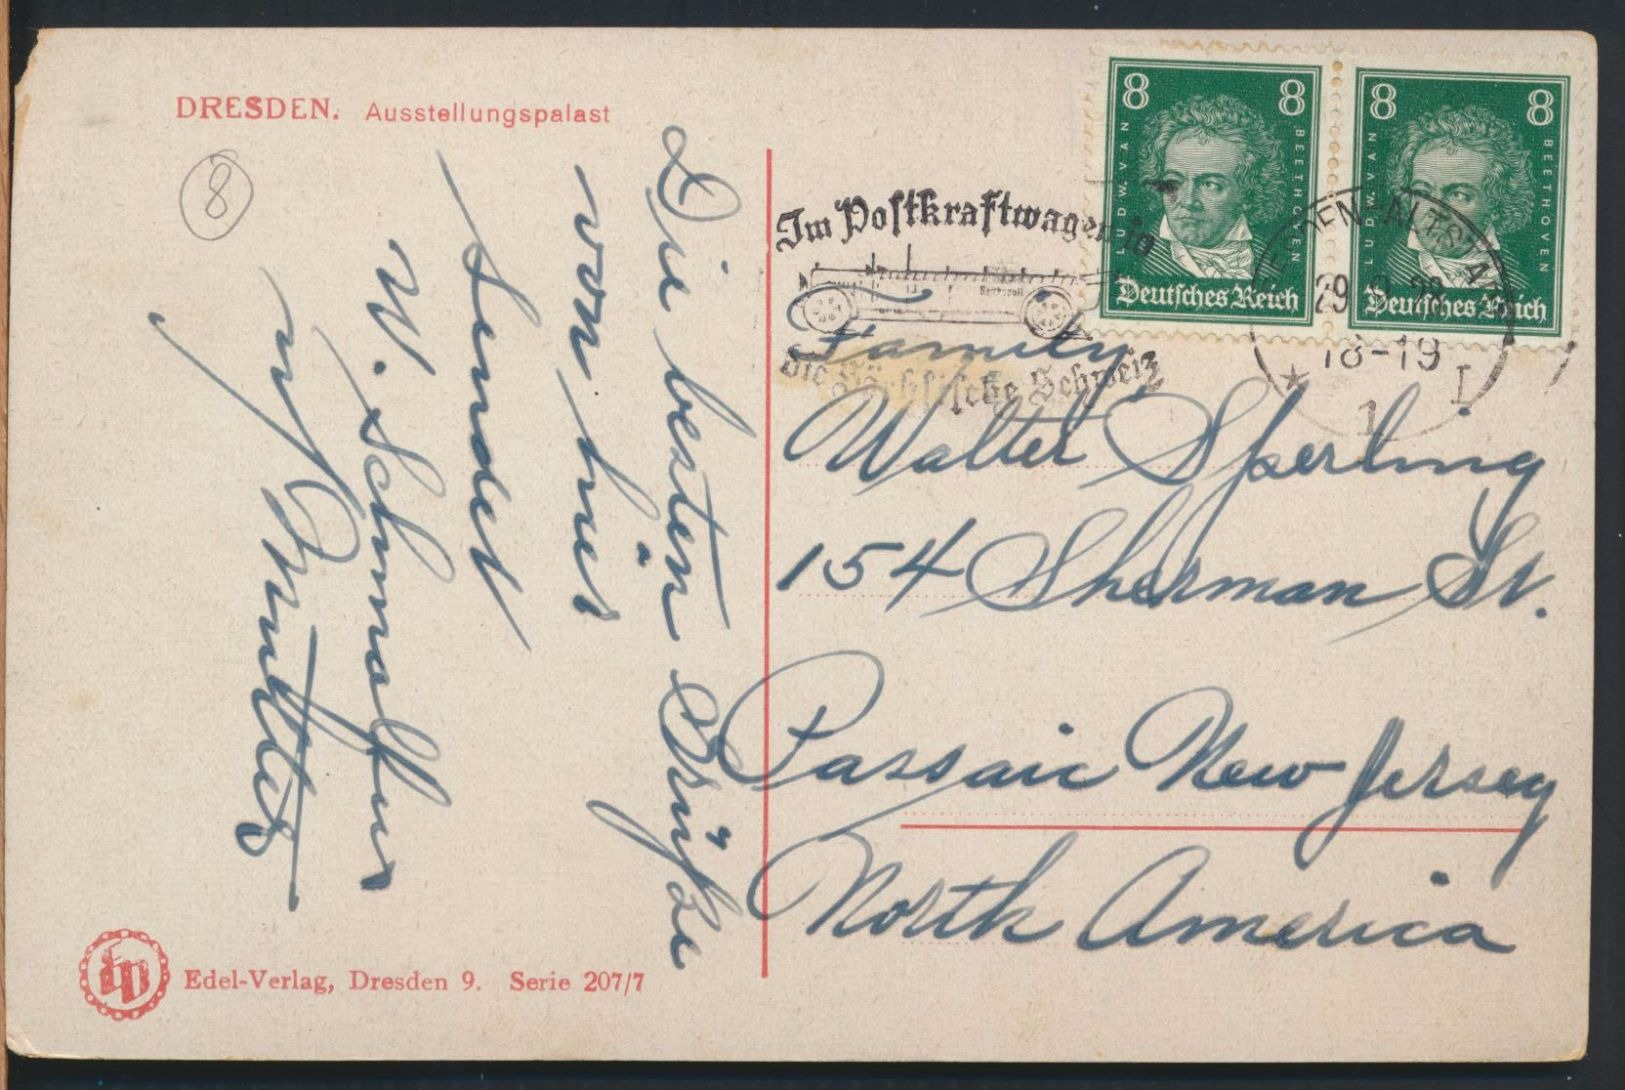 DRESDEN. Ausstellungspalast
8
Die besten Grüße
von hier
sendet
W. Schmolhus
u. Mutter
Edel-Verlag, Dresden 9. Serie 207/7
Im Postkraftwagen
die Sächsische Schweiz
8 8
LUDW. VAN
BEETHOVEN
Deutsches Reich
8 8
LUDW. VAN
BEETHOVEN
Deutsches Reich
DRESDEN-ALTST.
29
18-19
1
Family
Walter Sperling
154 Sherman St.
Passaic New Jersey
North America